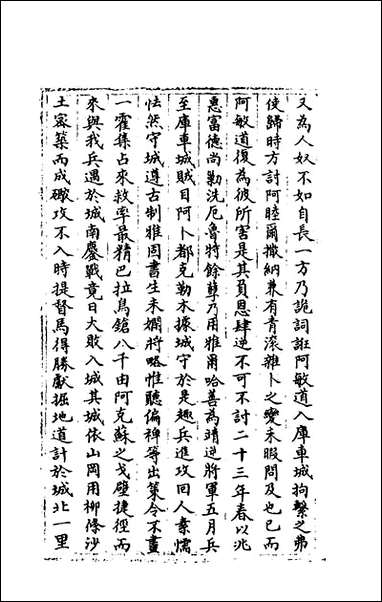 又為人奴不如自長一方乃詭詞誑阿敏道入庫車城拘繫之弗
使歸時方討阿睦爾撒納兼有青滾雜卜之變未暇問及也已而
阿敏道復為彼所害是其負恩肆逆不可不討二十三年春以兆
惠富德尚勦洗厄魯特餘孽乃用雅爾哈善為靖逆將軍五月兵
至庫車城賊目阿卜都克勒木據城守於是趣兵進攻回人素懦
怯然守城遵古制雅固書生未嫻將略惟聽偏裨等出策令不畫
一霍集占來救率最精巴拉鳥鎗八千由阿克蘇之戈壁捷徑而
來與我兵遇於城南鏖戰竟日大敗入城其城依山岡用柳條沙
土密築而成礮攻不入時提督馬得勝獻掘地道計於城北一里